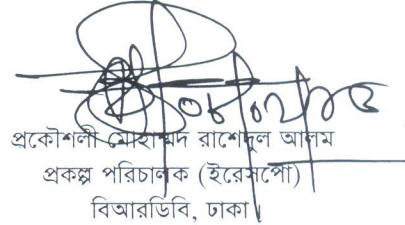 প্রকৌশলী মোহাম্মদ রাশেদুল আলম
প্রকল্প পরিচালক (ইরেসপো)
বিআরডিবি, ঢাকা